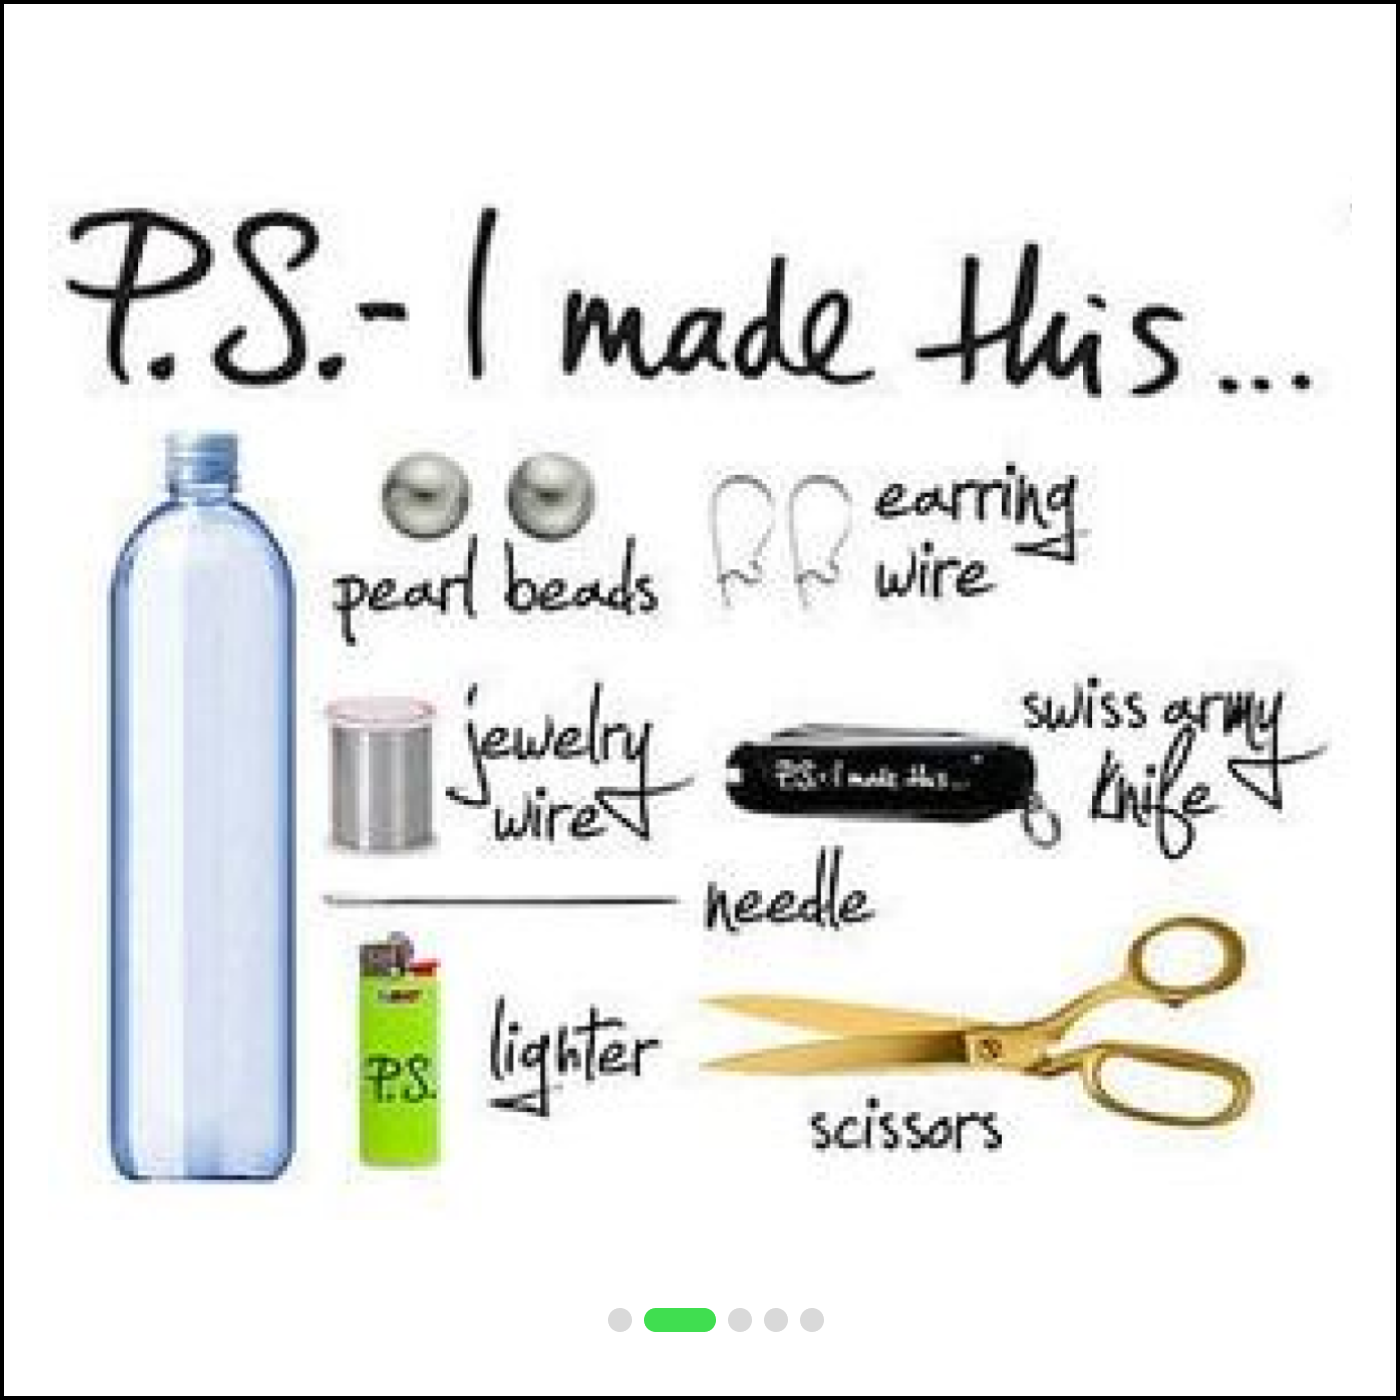 P.S.- I made this...
pearl beads
earring
wire
jewelry
wire
P.S.- I made this...
swiss army
knife
needle
P.S.
lighter
scissors